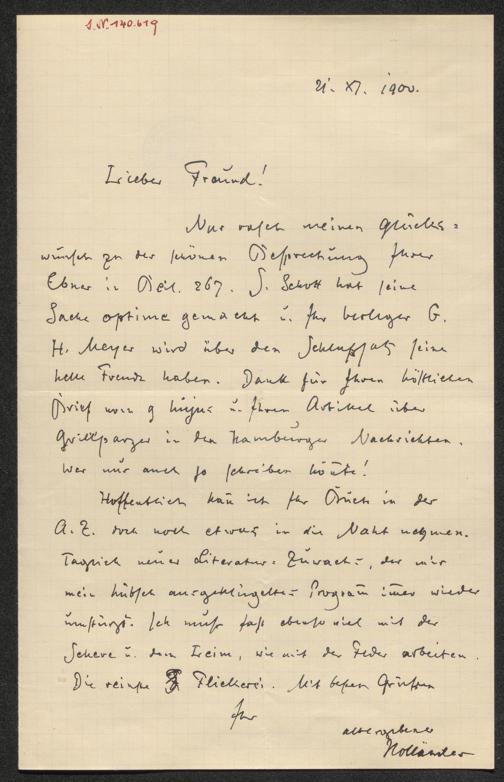 I.N. 140.619
21. XI. 1900.
Lieber Freund!
Nur rasch meinen Glück-
wunsch zu der schönen Besprechung Ihrer
Ebner in Beil. 267. S. Schott hat seine
Sache optime gemacht u. Ihr Verleger G.
H. Meyer wird über den Schlußsatz seine
helle Freude haben. Dank für Ihren köstlichen
Brief vom 9 hujus u. Ihren Artikel über
Grillparzer in den Hamburger Nachrichten.
Wer nur auch so schreiben könnte!
Hoffentlich kan̄ ich Ihr Buch in der
A. Z. doch noch etwas in die Naht nehmen.
Täglich neuer Literatur-Zuwachs, der mir
mein hübsch ausgeklügeltes Program̄ im̄er wieder
umstürzt. Ich muß fast ebenso viel mit der
Schere u. dem Leim, wie mit der Feder arbeiten.
Die reinste Flickerei. Mit besten Grüßen
Ihr
altergebener
Holländer